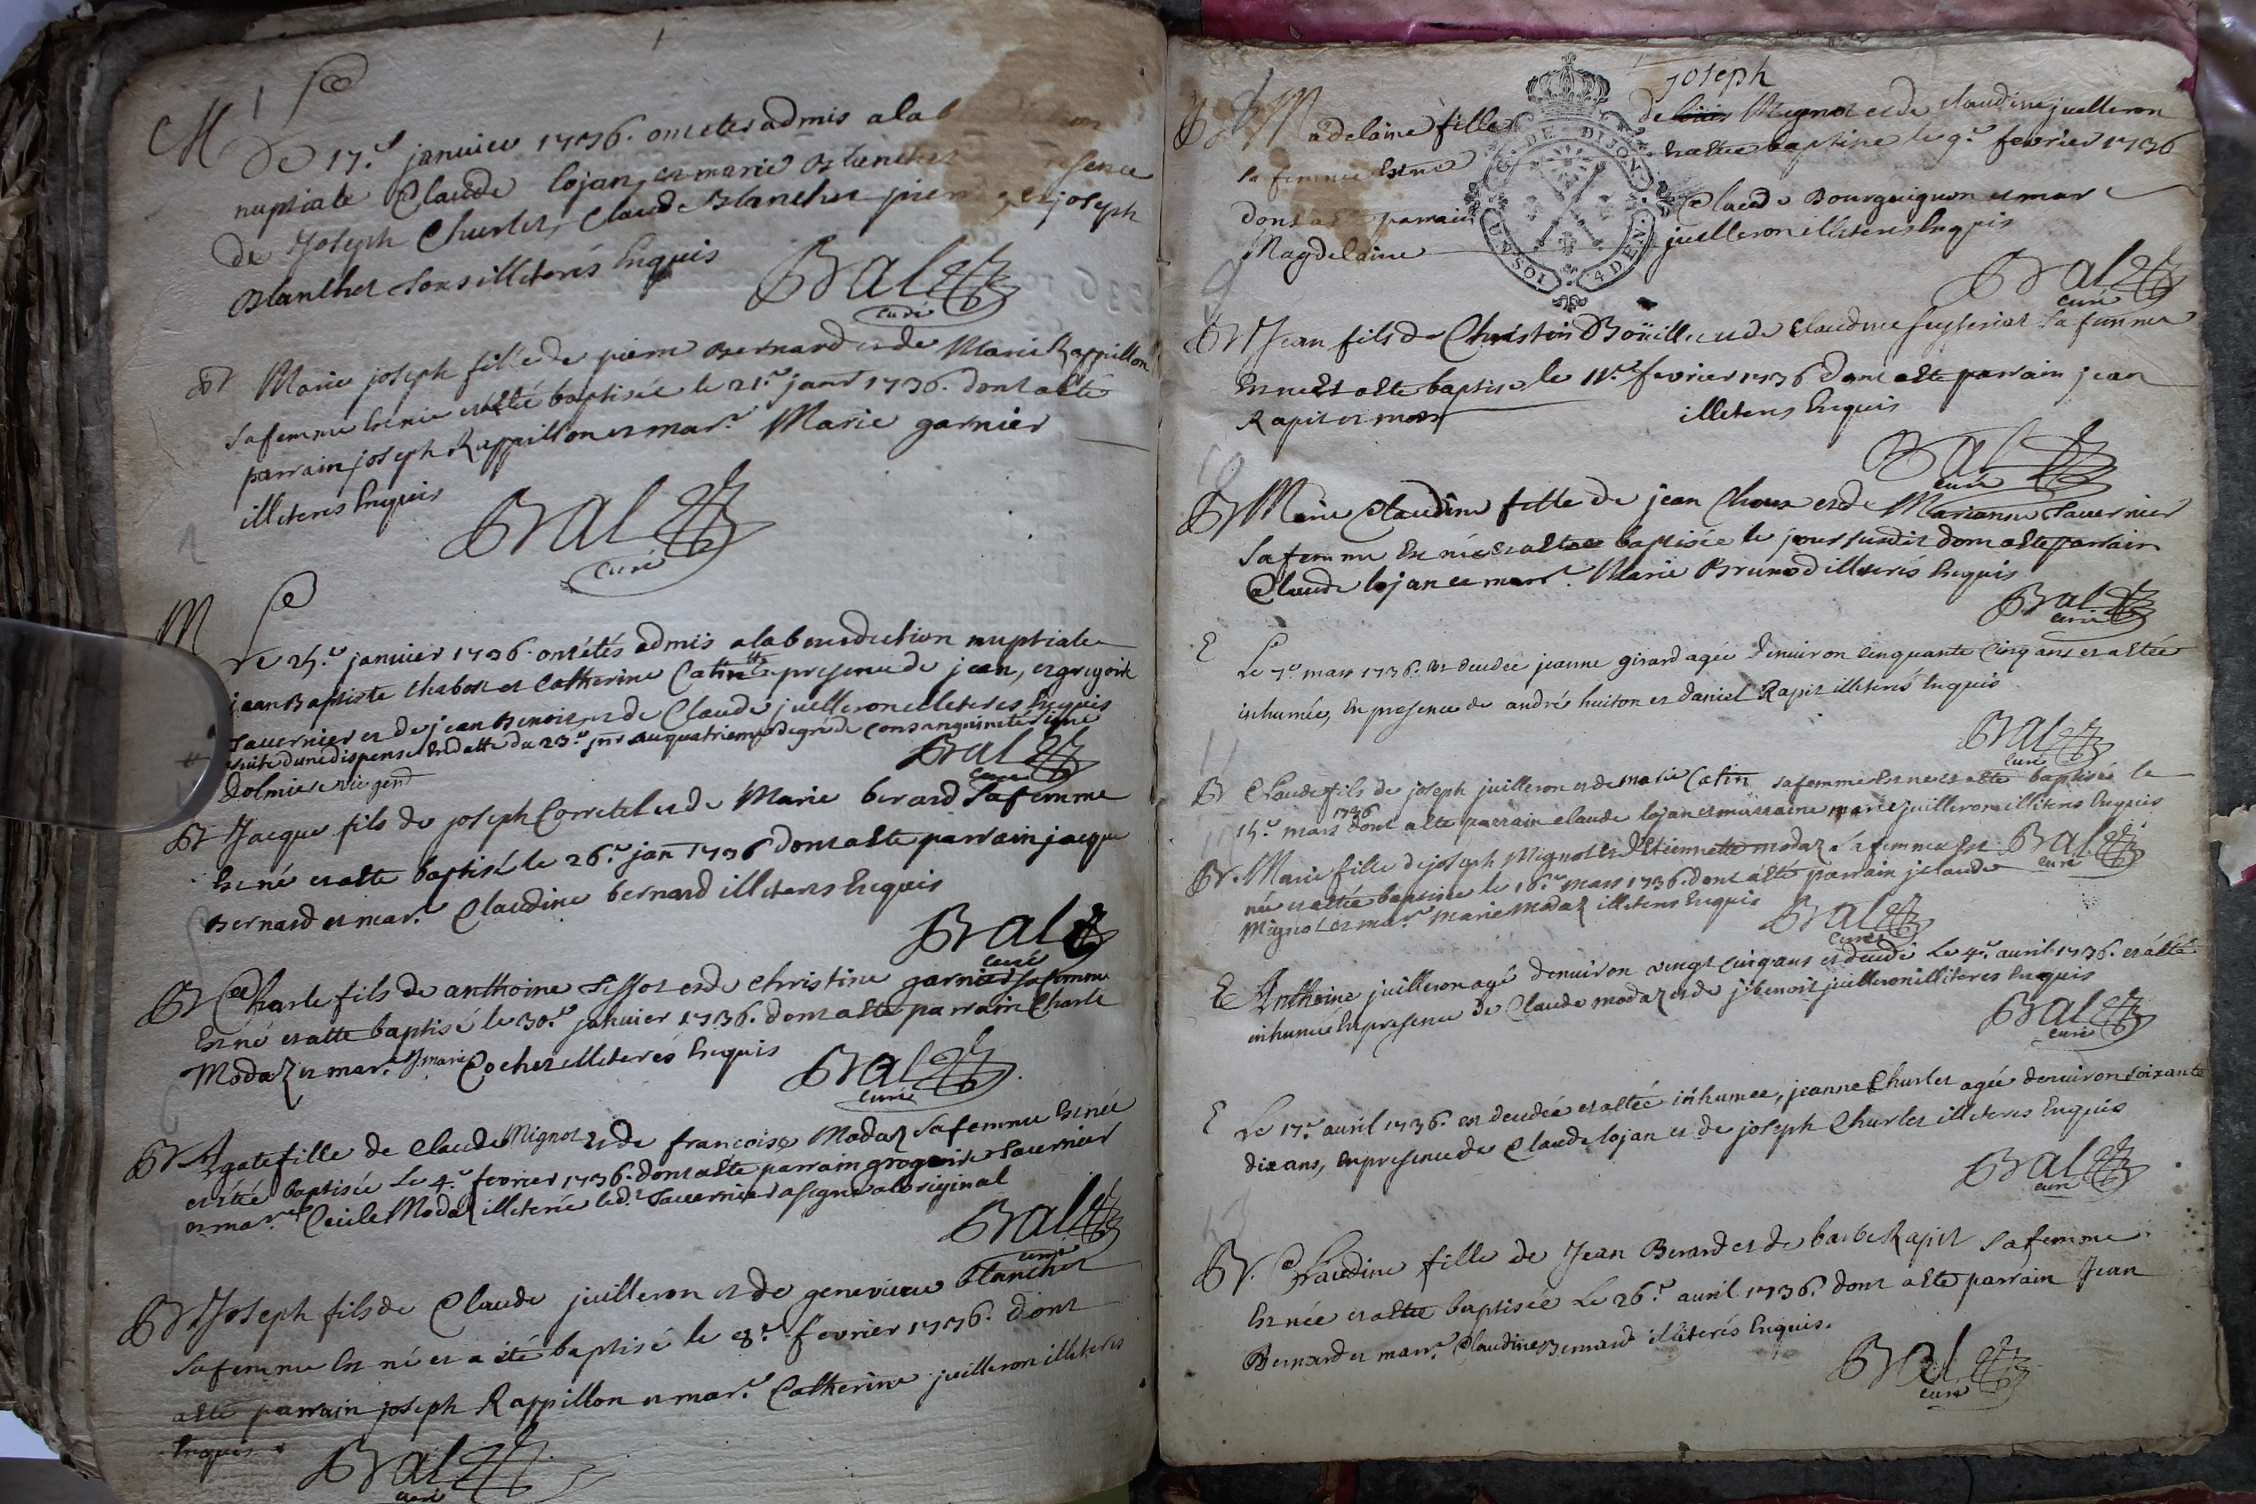 M
Le 17.e janvier 1736. ont etes admis a la b
nuptiale Claude lojan, et marie Blanchet
de Joseph Churlet, Claude Blanchet pierre, et joseph
Blanchet sous illiterés Enquis
Bral
curé
Bt Marie joseph fille de pierre Bernard et de Marie Rappillon
sa femme Est née et a été baptisée le 21.e janr 1736. dont a été
parrain joseph Rappillon et mar.e Marie garnier
illiterés Enquis
Bral
curé
M
Le 24.e janvier 1736. ont étés admis a la benediction nuptiale
jean Baptiste chabot et Catherine Catin En presence de jean, et gregoire
Tavernier et de jean Benoit, et de Claude juilleron illiteres Enquis
suite d'une dispense En datte du 23.e jnr au quatrieme degré de consanguinité signé
Dolmiere vic. gend
Bral
curé
Bt Jacque fils de joseph Corretel et de Marie berard sa femme
Est né et a été baptisé le 26.e jan 1736 dont a été parrain jacque
Bernard et mar.e Claudine bernard illiteres Enquis
Bral
curé
Bt Charle fils de anthoine Tissot et de Christine garnier sa femme
Est né et a été baptisé le 30.e janvier 1736. dont a été parrain Charle
Modaz et mar.e J. marie Cochet illiterés Enquis
Bral
curé
Bt. Agate fille de Claude Mignot et de francoise Modaz sa femme Est née
et a été baptisée Le 4.e fevrier 1736. dont a été parrain gregoire Tavernier
et mar.e Cecile Modaz illiterée led.t Tavernier a signé a l'original
Bral
curé
Bt Joseph fils de Claude juilleron et de genevieve Blanchet
sa femme Est né et a été baptisé le 8.e fevrier 1736. dont
a été parrain joseph Rappillon et mar.e Catherine juilleron illiteres
Enquis
Bral
curé
joseph
Bt Madelaine fille de louis Mignot et de Claudine juilleron
G. DE DIJON
sa femme Est née et a étée baptisée le 9.e fevrier 1736
dont a été parrain Claude Bourguignon et mar
Magdelaine juilleron illiteres Enquis
4 DEN
Bral
curé
Bt Jean fils de Christin Boüille et de Claudine seysseriat sa femme
Est né Et a été baptisé le 11.e fevrier 1736 dont a été parrain jean
Rapit et mar illiteres Enquis
Bral
curé
Bt Marie Claudine fille de jean Choux et de Marianne Tavernier
sa femme Est née et a été baptisée le jour susdit dont a été parrain
Claude lojan et marr.e Marie Brunod illiterés Enquis
Bral
curé
E Le 7.e mars 1736. est decedée jeanne girard agée d'environ cinquante cinq ans et a étée
inhumée, En presence de andré huiton et daniel Rapit illiterés Enquis
Bral
curé
Bt Claude fils de joseph juilleron et de marie Catin sa femme Est né et a été baptisé le
14.e mars 1736 dont a été parrain claude lojan et marraine marie juilleron illiteres Enquis
Bral
curé
Bt. Marie fille de joseph Mignot et d'Etiennette modaz sa femme Est
née et a été baptisée le 16.e mars 1736. dont a été parrain j. claude
Mignot et mar.e marie Modaz illiteres Enquis
Bral
curé
E Anthoine juilleron agé d'environ vingt cinq ans est decedé Le 4.e avril 1736. et a été
inhumé En presence de Claude modaz et de j. benoit juilleron illiteres Enquis
Bral
curé
E Le 17.e avril 1736. est decedée et a étée inhumee, jeanne Churlet agée d'environ soixante
dix ans, En presence de Claude lojan et de joseph Churlet illiteres Enquis
Bral
curé
Bt. Claudine fille de Jean Berard et de barbe Rapit sa femme
Est née et a étée baptisée Le 26.e avril 1736. dont a été parrain Jean
Bernard et marr.e Claudine Bernard illiterés Enquis.
Bral
curé